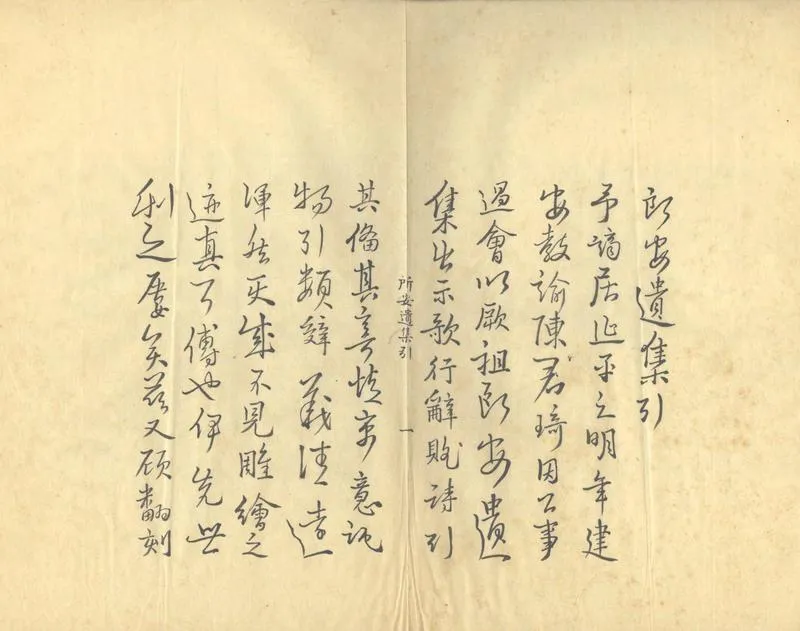 所安遺集引
予謫居延平之明年建
安教諭陳君琦因公事
過會以厥祖所安遺
集出示歌行辭賦詩引
所安遺集引
一
其備其寄情寓意託
物引類辭義清遠
渾然天成不見雕繪之
迹真可傳也伊先世
刻之屢矣茲又願翻刻